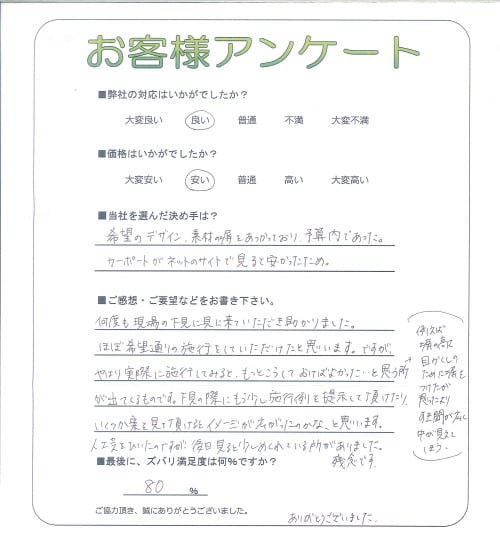 お客様アンケート
■弊社の対応はいかがでしたか？
大変良い 良い 普通 不満 大変不満
■価格はいかがでしたか？
大変安い 安い 普通 高い 大変高い
■当社を選んだ決め手は？
希望のデザイン、素材の塀をあつかっており、予算内であった。
カーポートがネットのサイトで見ると安かったため。
■ご感想・ご要望などをお書き下さい。
何度も現場の下見に見に来ていただき助かりました。
ほぼ希望通りの施行をしていただけたと思います。ですが、
やはり実際に施行してみると、もっとこうしておけばよかった…と思う所
が出てくるものです。下見の際にもう少し施行例を提示して頂けたり、
いくつか案を見て頂けるとイメージが広がったのかな、と思います。
人工芝をひいたのですが、後日見ると少しめくれている所がありました。
残念です。
例えば
塀の
目かくしの
ために塀を
つけたが
思ったより
すき間が広く
中が見えて
しまう。
■最後に、ズバリ満足度は何％ですか？
80 ％
ご協力頂き、誠にありがとうございました。
ありがとうございました。